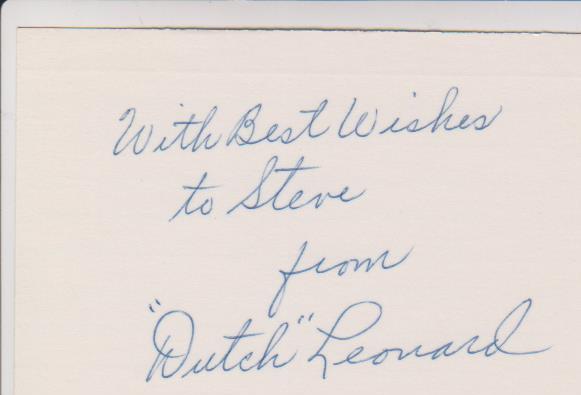 With Best Wishes
to Steve
from
"Dutch" Leonard